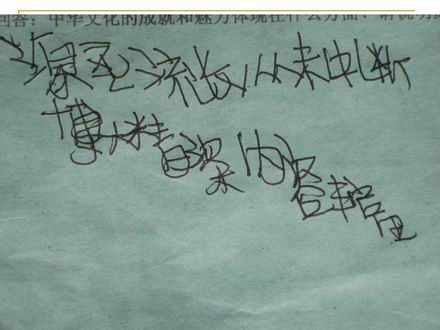 回答：中华文化的成就和魅力体现在什么方面？请说明
源远流长，从未中断
博大精深内容丰富